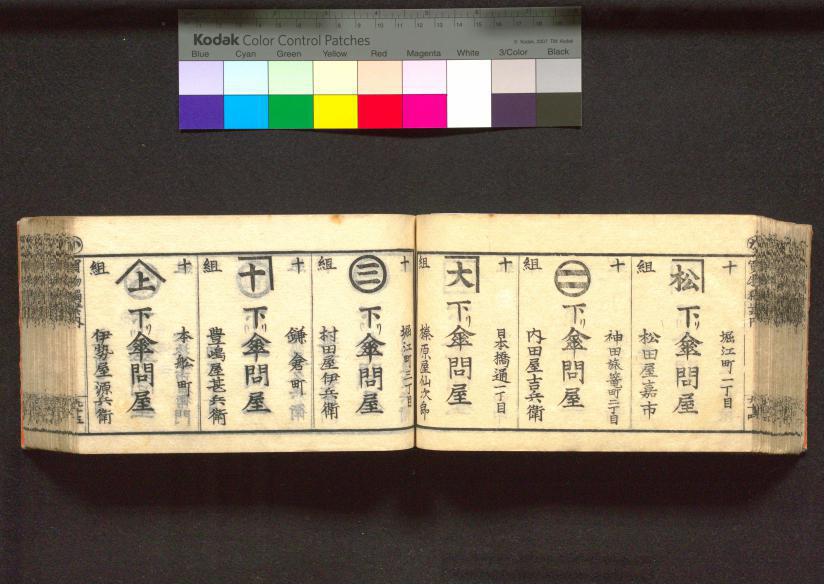 Kodak Color Control Patches
© Kodak, 2007 TM: Kodak
Blue Cyan Green Yellow Red Magenta White 3/Color Black
十組
堀江町一丁目
松
下リ傘問屋
松田屋嘉市
十組
神田旅篭町二丁目
二
下リ傘問屋
内田屋吉兵衛
十組
日本橋通一丁目
大
下リ傘問屋
榛原屋仙次郎
十組
堀江町三丁目
三
下リ傘問屋
村田屋伊兵衛
十組
鎌倉町
十
下リ傘問屋
豊嶋屋甚兵衛
十組
本舩町
上
下リ傘問屋
伊勢屋源兵衛